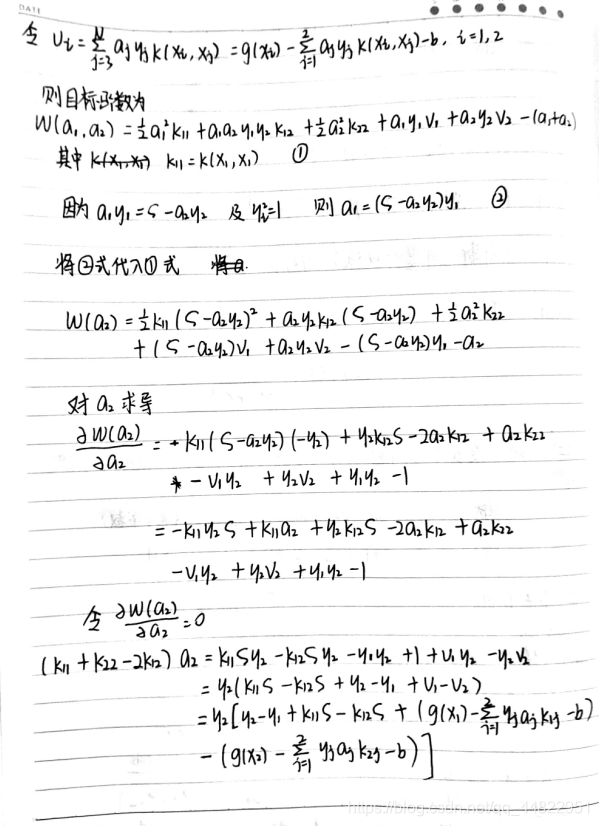 DATE
令 Vi = Σ_{j=3}^{N} aj yj k(xi, xj) = g(xi) - Σ_{j=1}^{2} aj yj k(xi, xj) - b, i=1,2
则目标函数为
W(a1, a2) = ½a1²k11 + a1a2y1y2k12 + ½a2²k22 + a1y1V1 + a2y2V2 - (a1+a2)
其中 k(x1,x1) k11 = k(x1, x1) ①
因为 a1y1 = ς - a2y2 及 yi²=1 则 a1 = (ς - a2y2)y1 ②
将②式代入①式
W(a2) = ½k11(ς - a2y2)² + a2y2k12(ς - a2y2) + ½a2²k22
+ (ς - a2y2)V1 + a2y2V2 - (ς - a2y2)y1 - a2
对 a2 求导
∂W(a2)/∂a2 = + k11(ς - a2y2)(-y2) + y2k12ς - 2a2k12 + a2k22
- V1y2 + y2V2 + y1y2 - 1
= -k11y2ς + k11a2 + y2k12ς - 2a2k12 + a2k22
- V1y2 + y2V2 + y1y2 - 1
令 ∂W(a2)/∂a2 = 0
(k11 + k22 - 2k12) a2 = k11ςy2 - k12ςy2 - y1y2 + 1 + V1y2 - y2V2
= y2(k11ς - k12ς + y2 - y1 + V1 - V2)
= y2[y2 - y1 + k11ς - k12ς + (g(x1) - Σ_{j=1}^{2} yjajk1j - b)
- (g(x2) - Σ_{j=1}^{2} yjajk2j - b)]
https://blog.csdn.net/qq_44822951